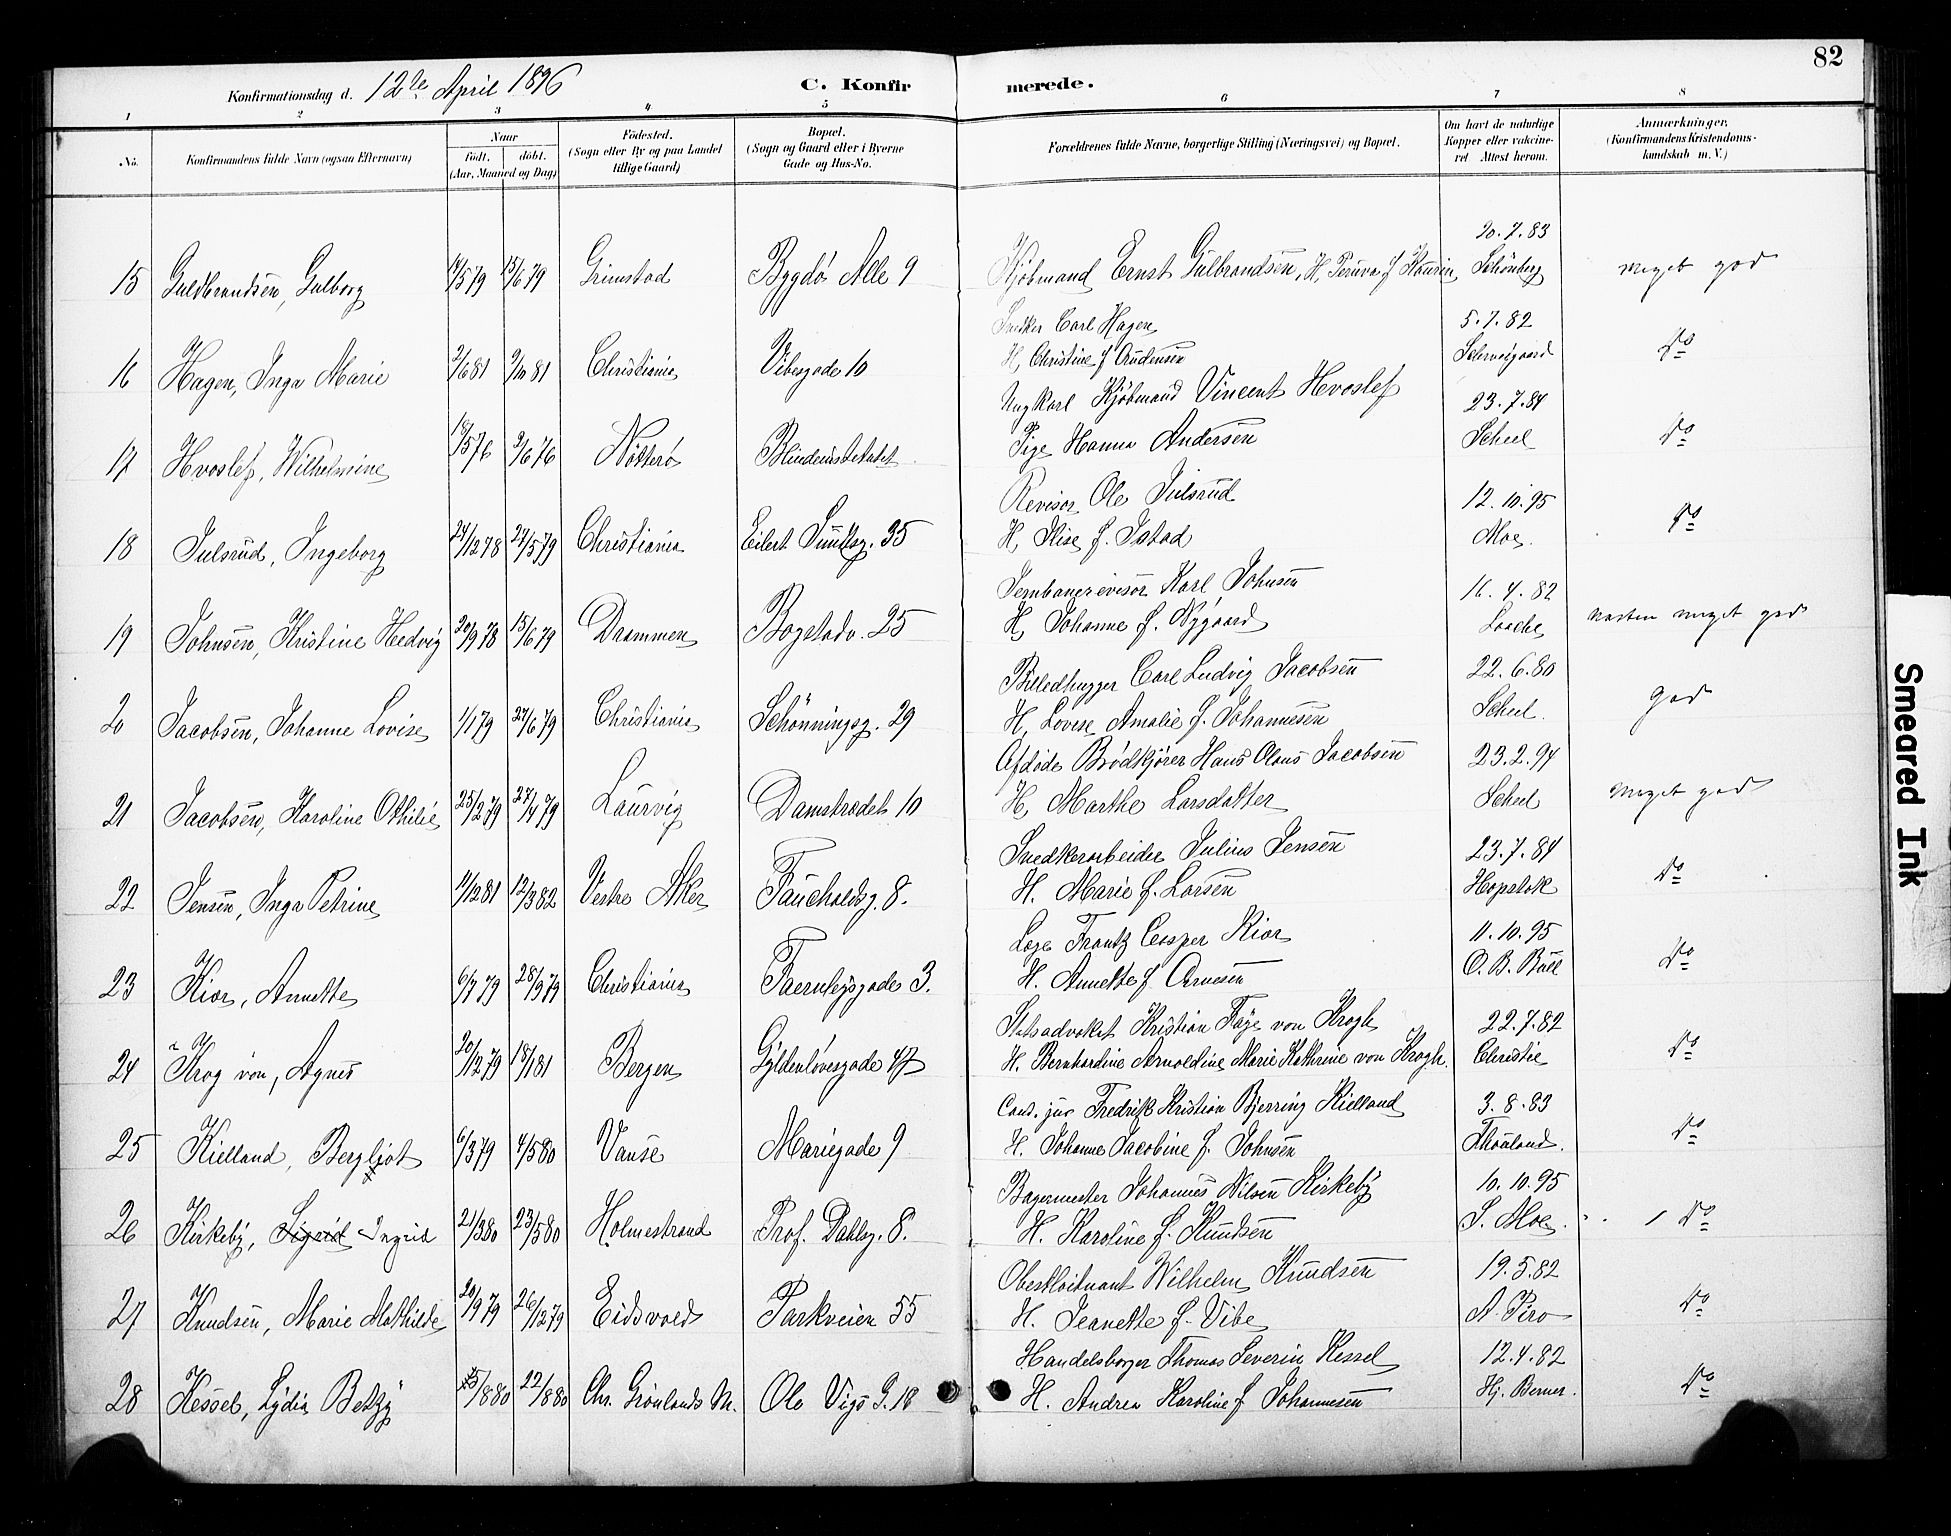 82
Konfirmationsdag d. 12te April 1896 C. Konfirmerede.
1 2 3 4 5 6 7 8
No. Konfirmandens fulde Navn (ogsaa Efternavn) Naar født. døbt. (Aar, Maaned og Dag) Fødested. (Sogn eller By og paa Landet tillige Gaard) Bopæl. (Sogn og Gaard eller i Byerne Gade og Hus-No. Forældrenes fulde Navne, borgerlige Stilling (Næringsvei) og Bopæl. Om havt de naturlige Kopper eller vakcineret. Attest herom. Anmærkninger. (Konfirmandens Kristendomskundskab m. V.)
20.7.83
15 Guldbrandsen, Gulborg 14/5 79 15/6 79 Grimstad Bygdø Alle 9 Kjøbmand Ernst Gulbrandsen, H, f Kaurin Schønberg meget god
Snedker Carl Hagen 5.7.82
16 Hagen, Inga Marie 2/6 81 9/10 81 Christiania Vibesgade 10 H, Christine f Andersen Schweigaard do
Ungkarl Kjøbmand Vincent Hvoslef 23.7.84
17 Hvoslef, Wilhelmine 18/5 76 3/6 76 Nøtterø Blindeinstitutet Pige Hanna Andersen Scheel do
Revisor Ole Julsrud 12.10.95
18 Julsrud, Ingeborg 24/12 78 27/5 79 Christiania Eilert Sundtsg. 35 H, Elise f. Istad Moe. do
Jernbanerevisor Karl Johnsen 16.4.82
19 Johnsen, Kristine Hedvig 20/9 78 15/6 79 Drammen Bogstadv. 25 H, Johanne f. Nygaard Laache næsten meget god
Billedhugger Carl Ludvig Jacobsen 22.6.80
20 Jacobsen, Johanne Lovise 1/1 79 27/6 79 Christiania Schønningsg. 29 H, Lovise Amalie f. Johannesen Scheel. god
Afdøde Brødkjører Hans Olaus Jacobsen 23.2.94
21 Jacobsen, Karoline Othilie 25/2 79 27/4 79 Laurvig Damstrædet 10 H, Marthe Larsdatter Scheel meget god
Snedkerarbeider Julius Jensen 23.7.84
22 Jensen, Inga Petrine 4/12 81 12/3 82 Vestre Aker Fauchaldsg. 8. H. Marie f. Larsen Hopstok do
Læge Frantz Casper Kiær 11.10.95
23 Kiær, Annette 6/7 79 28/9 79 Christiania Fearnleysgade 3. H. Annette f Arnesen O. B. Bull do
Statsadvokat Kristian Faye von Krogh 22.7.82
24 Krog von, Agnes 20/12 79 18/1 81 Bergen Gyldenløvesgade 47 H. Bernhardine Arnoldine Marie Kathrine von Krogh. Christie do
Cand. jur Fredrik Kristian Bjerring Kielland 3.8.83
25 Kielland, Bergljot 6/3 79 4/5 80 Vanse Mariegade 9 H. Johanne Jacobine f. Johnsen Thauland. do
Bagermester Johannes Nilsen Kirkeby 10.10.95
26 Kirkeby, Sigrid Ingrid 21/3 80 23/5 80 Holmestrand Prof. Dahlsg. 8. H. Karoline f. Knudsen S. Moe. do
Oberstløitnant Wilhelm Knudsen 19.5.82
27 Knudsen, Marie Mathilde 20/9 79 26/12 79 Eidsvold Parkveien 55 H. Jeanette f. Vibe A. Piro do
Handelsborger Thomas Severin Kessel 12.4.82
28 Kessel, Lydia Betzy 25/8 80 22/8 80 Chr. Grønlands M. Ole Vigs G. 18 H. Andrea Karoline f Johannesen Hj. Berner. do
Smeared Ink